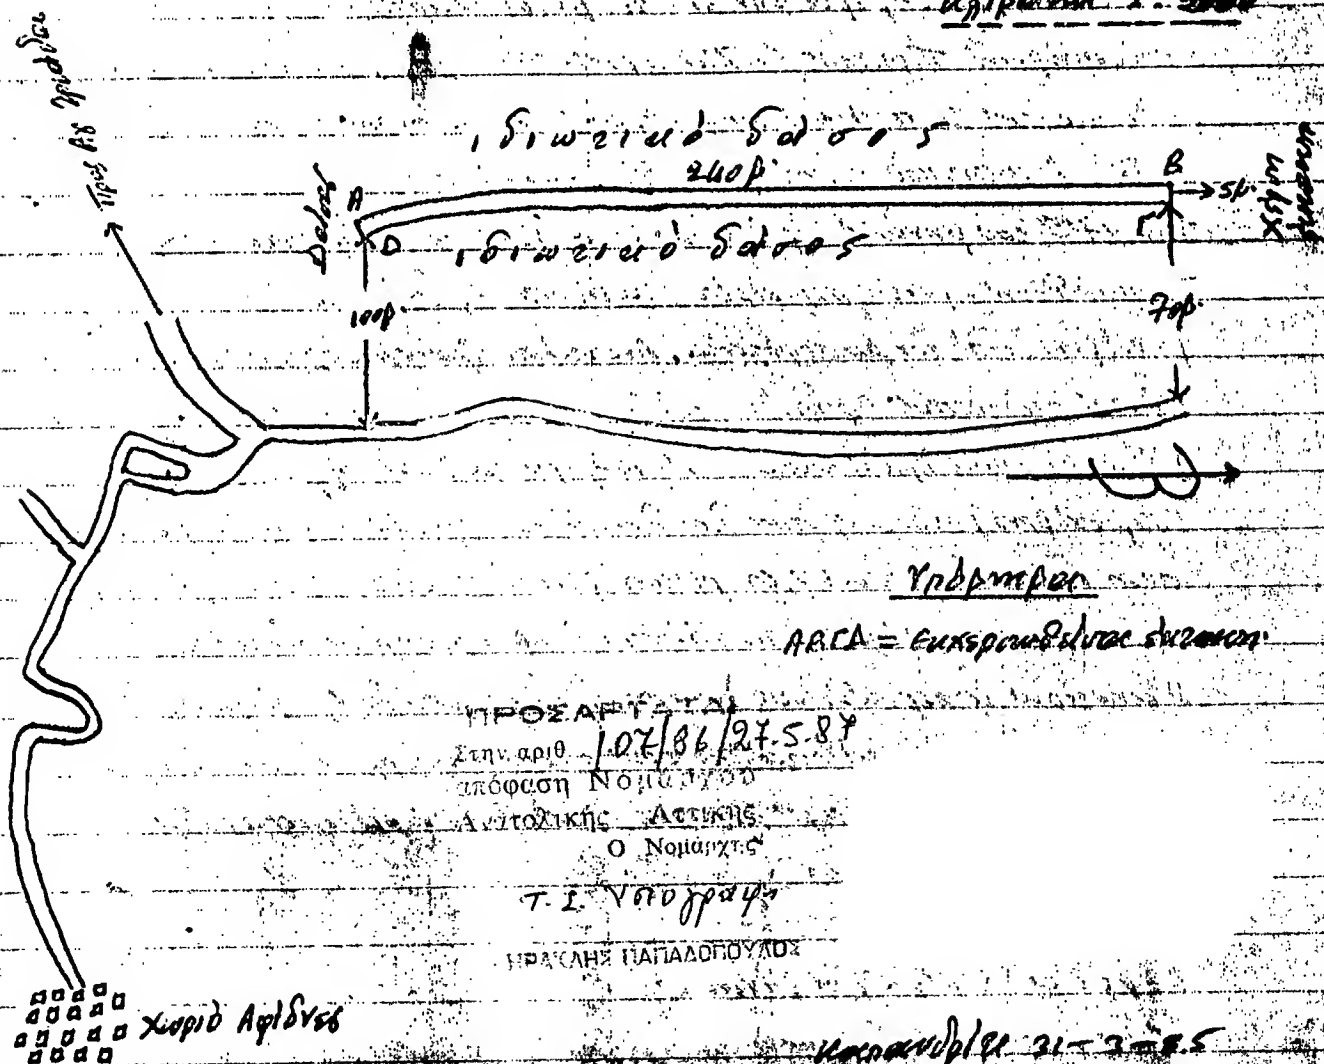 Κλίμακα 1:
Προς Αγ.
ιδιωτικό δάσος
240μ.
Δάσος
Α
Β
5μ.
Δ
Γ
ιδιωτικό δάσος
100μ.
70μ.
Β
Υπόμνημα
ΑΒΓΔ = Εκχερσωθείσα έκταση.
ΠΡΟΣΑΡΤΑΤΑΙ
Στην αριθ. 107/86/27.5.87
απόφαση Νομάρχου
Ανατολικής Αττικής
Ο Νομάρχης
Τ. Σ. Υπογραφή
ΗΡΑΚΛΗΣ ΠΑΠΑΔΟΠΟΥΛΟΣ
χωριό Αφίδνες
Καπανδρίτι 31-3-85